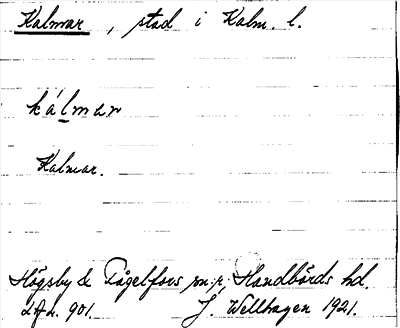 Kalmar, stad i Kalm. l.
kálmar
Kalmar.
Högsby & Fågelfors m.p., Handbörds hd.
d. 901. J. Wellhagen 1921.